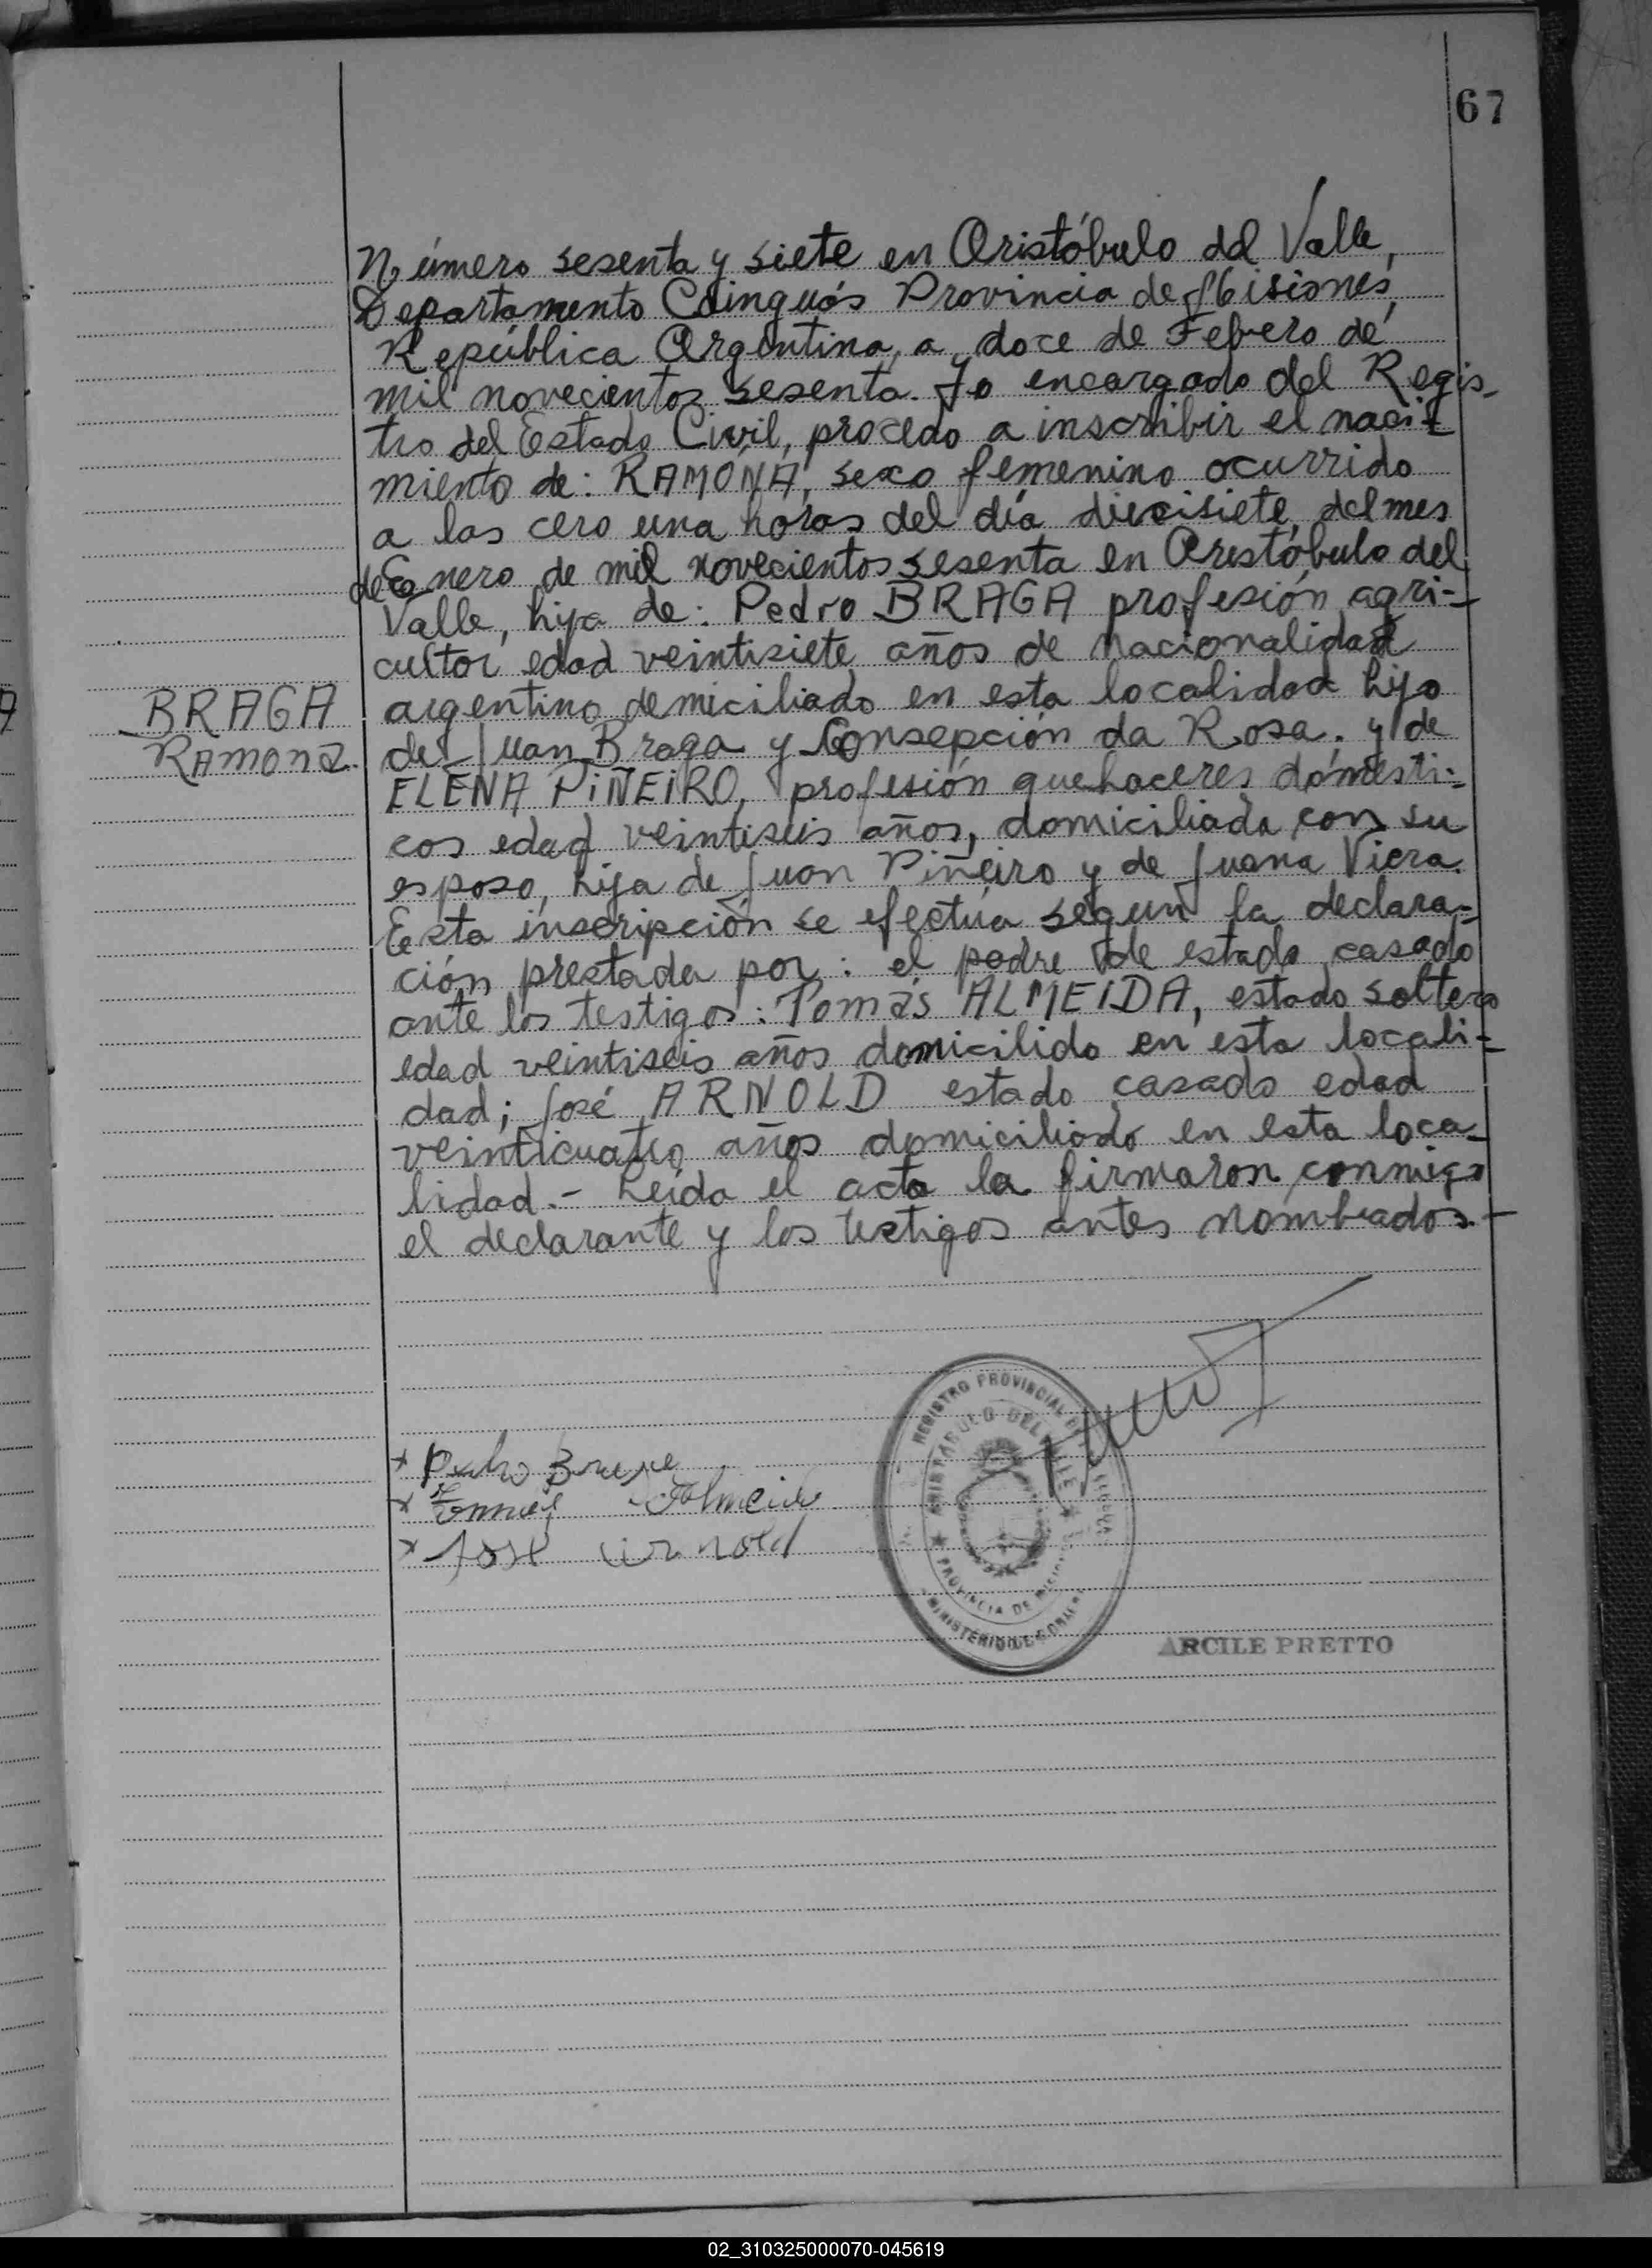 67
Número sesenta y siete en Aristóbulo del Valle,
Departamento Cainguás Provincia de Misiones,
República Argentina, a doce de Febrero de
mil novecientos sesenta. Yo encargado del Regis-
tro del Estado Civil, procedo a inscribir el naci-
miento de: RAMONA, sexo femenino ocurrido
a las cero una horas del día diecisiete, del mes
de Enero de mil novecientos sesenta en Aristóbulo del
Valle, hija de: Pedro BRAGA profesión agri-
cultor edad veintisiete años de nacionalidad
BRAGA
RAMONA.
argentino domiciliado en esta localidad hijo
de Juan Braga y Consepción da Rosa. y de
ELENA PIÑEIRO, profesión quehaceres domésti-
cos edad veintiseis años, domiciliada con su
esposo, hija de Juan Piñeiro y de Juana Viera.
Esta inscripción se efectúa segun la declara-
ción prestada por: el padre de estado casado
ante los testigos: Tomás ALMEIDA, estado soltero
edad veintiseis años domicilido en esta locali-
dad; José ARNOLD estado casado edad
veinticuatro años domiciliado en esta loca-
lidad.- Leída el acta la firmaron conmigo
el declarante y los testigos antes nombrados.-
REGISTRO PROVINCIAL DE
ARISTÓBULO DEL VALLE
PROVINCIA DE MISIONES
MINISTERIO DE GOBIERNO
x Pedro
x Tomas Almeida
x José Arnold
ARCILE PRETTO
02_310325000070-045619